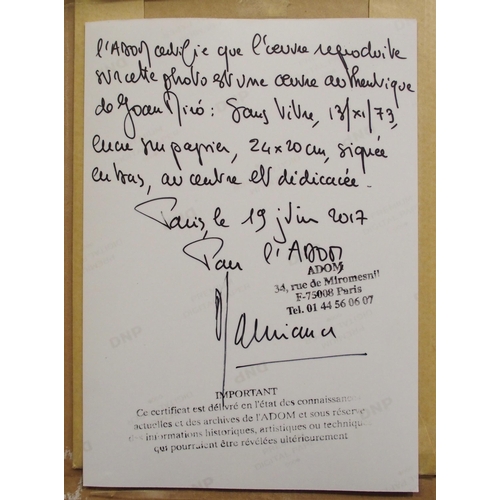 l'ADOM certifie que l'œuvre reproduite
sur cette photo est une œuvre authentique
de Joan Miró : Sans Titre, 13/XI/73,
encre sur papier, 24x20cm, signée
en bas, au centre et dédicacée.
Paris, le 19 juin 2017
Pour l'ADOM
ADOM
34, rue de Miromesnil
F-75008 Paris
Tel. 01 44 56 06 07
IMPORTANT
Ce certificat est délivré en l'état des connaissances
actuelles et des archives de l'ADOM et sous réserve
des informations historiques, artistiques ou techniques
qui pourraient être révélées ultérieurement
DNP
DNP
DNP